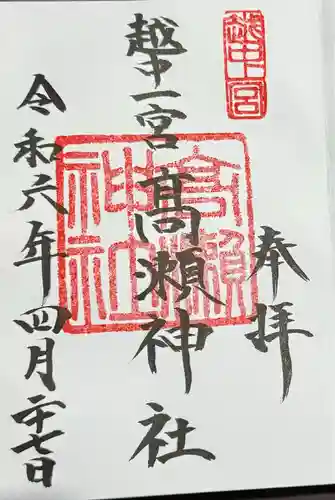 奉拝
越中一宮
越中一宮髙瀬神社
高瀬神社
令和六年四月二十七日